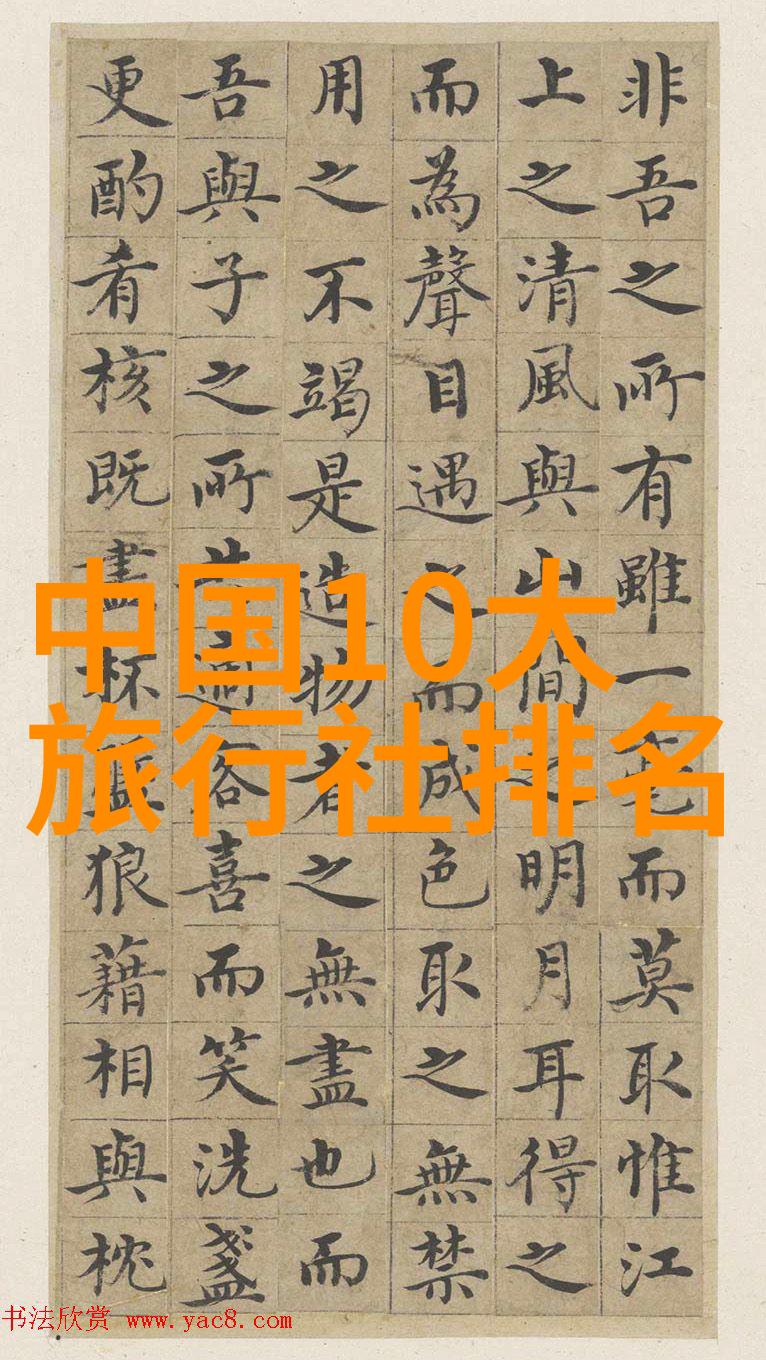 非吾之所有雖一毫而莫取惟江
上之清風與山間之明月耳得之
而為聲目遇之而成色取之無禁
用之不竭是造物者之無盡也而
吾與子之所共適客喜而笑洗盞
更酌肴核既盡杯盤狼藉相與枕
中国10大
旅行社排名
书法欣赏 www.yac8.com